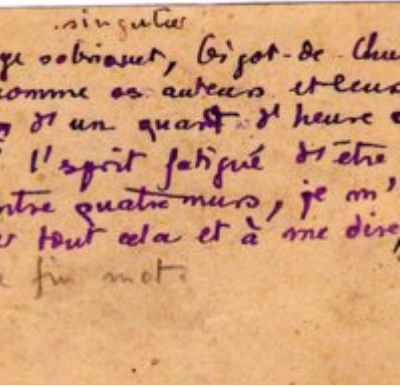 singulier
ge sobriquet, Bigot de Chu
comme os auteurs et leurs
d'un quart d'heure
l'esprit fatigué d'être
ntre quatre murs, je m'
er tout cela et à me dire,
fin mot.